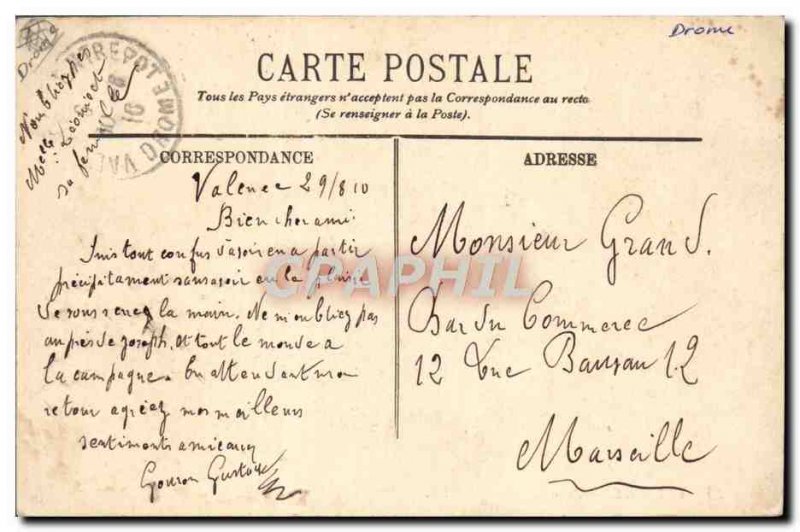 Drome
Drome
CARTE POSTALE
Tous les Pays étrangers n'acceptent pas la Correspondance au recto
(Se renseigner à la Poste).
CORRESPONDANCE
ADRESSE
N'oubliez pas
Melle
sa femme
VAL DROME
10
Valence 29/8 10
Bien cher ami
Suis tout confus d'avoir eu a partir
précipitament sans avoir eu le plaisir
de vous serrez la main. Ne m'oubliez pas
auprès de Joseph. et tout le monde a
la campagne. En attendant mon
retour agréez mes meilleurs
sentiments amicaux
Gouron Gustave
Monsieur Grand.
Bar du Commerce
12 rue 12
Marseille
CPAPHIL